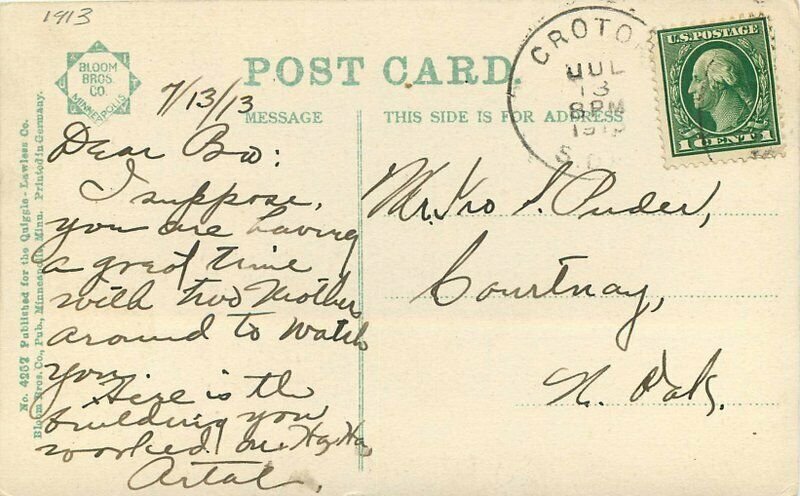 1913
BLOOM
BROS.
CO.
MINNEAPOLIS
POST CARD.
MESSAGE
THIS SIDE IS FOR ADDRESS
CROTO
JUL
13
8PM
S.
U.S. POSTAGE
1 CENT 1
No. 4257 Published for the Quiggle-Lawless Co.
Bloom Bros. Co., Pub., Minneapolis Minn. Printed in Germany.
7/13/13
Dear Bro:
I suppose,
you are having
a great time
with two Mother
around to watch
you.
Here is the
building you
worked on. Ha, Ha,
Mr. S. Puder,
Courtnay,
N. Dak.